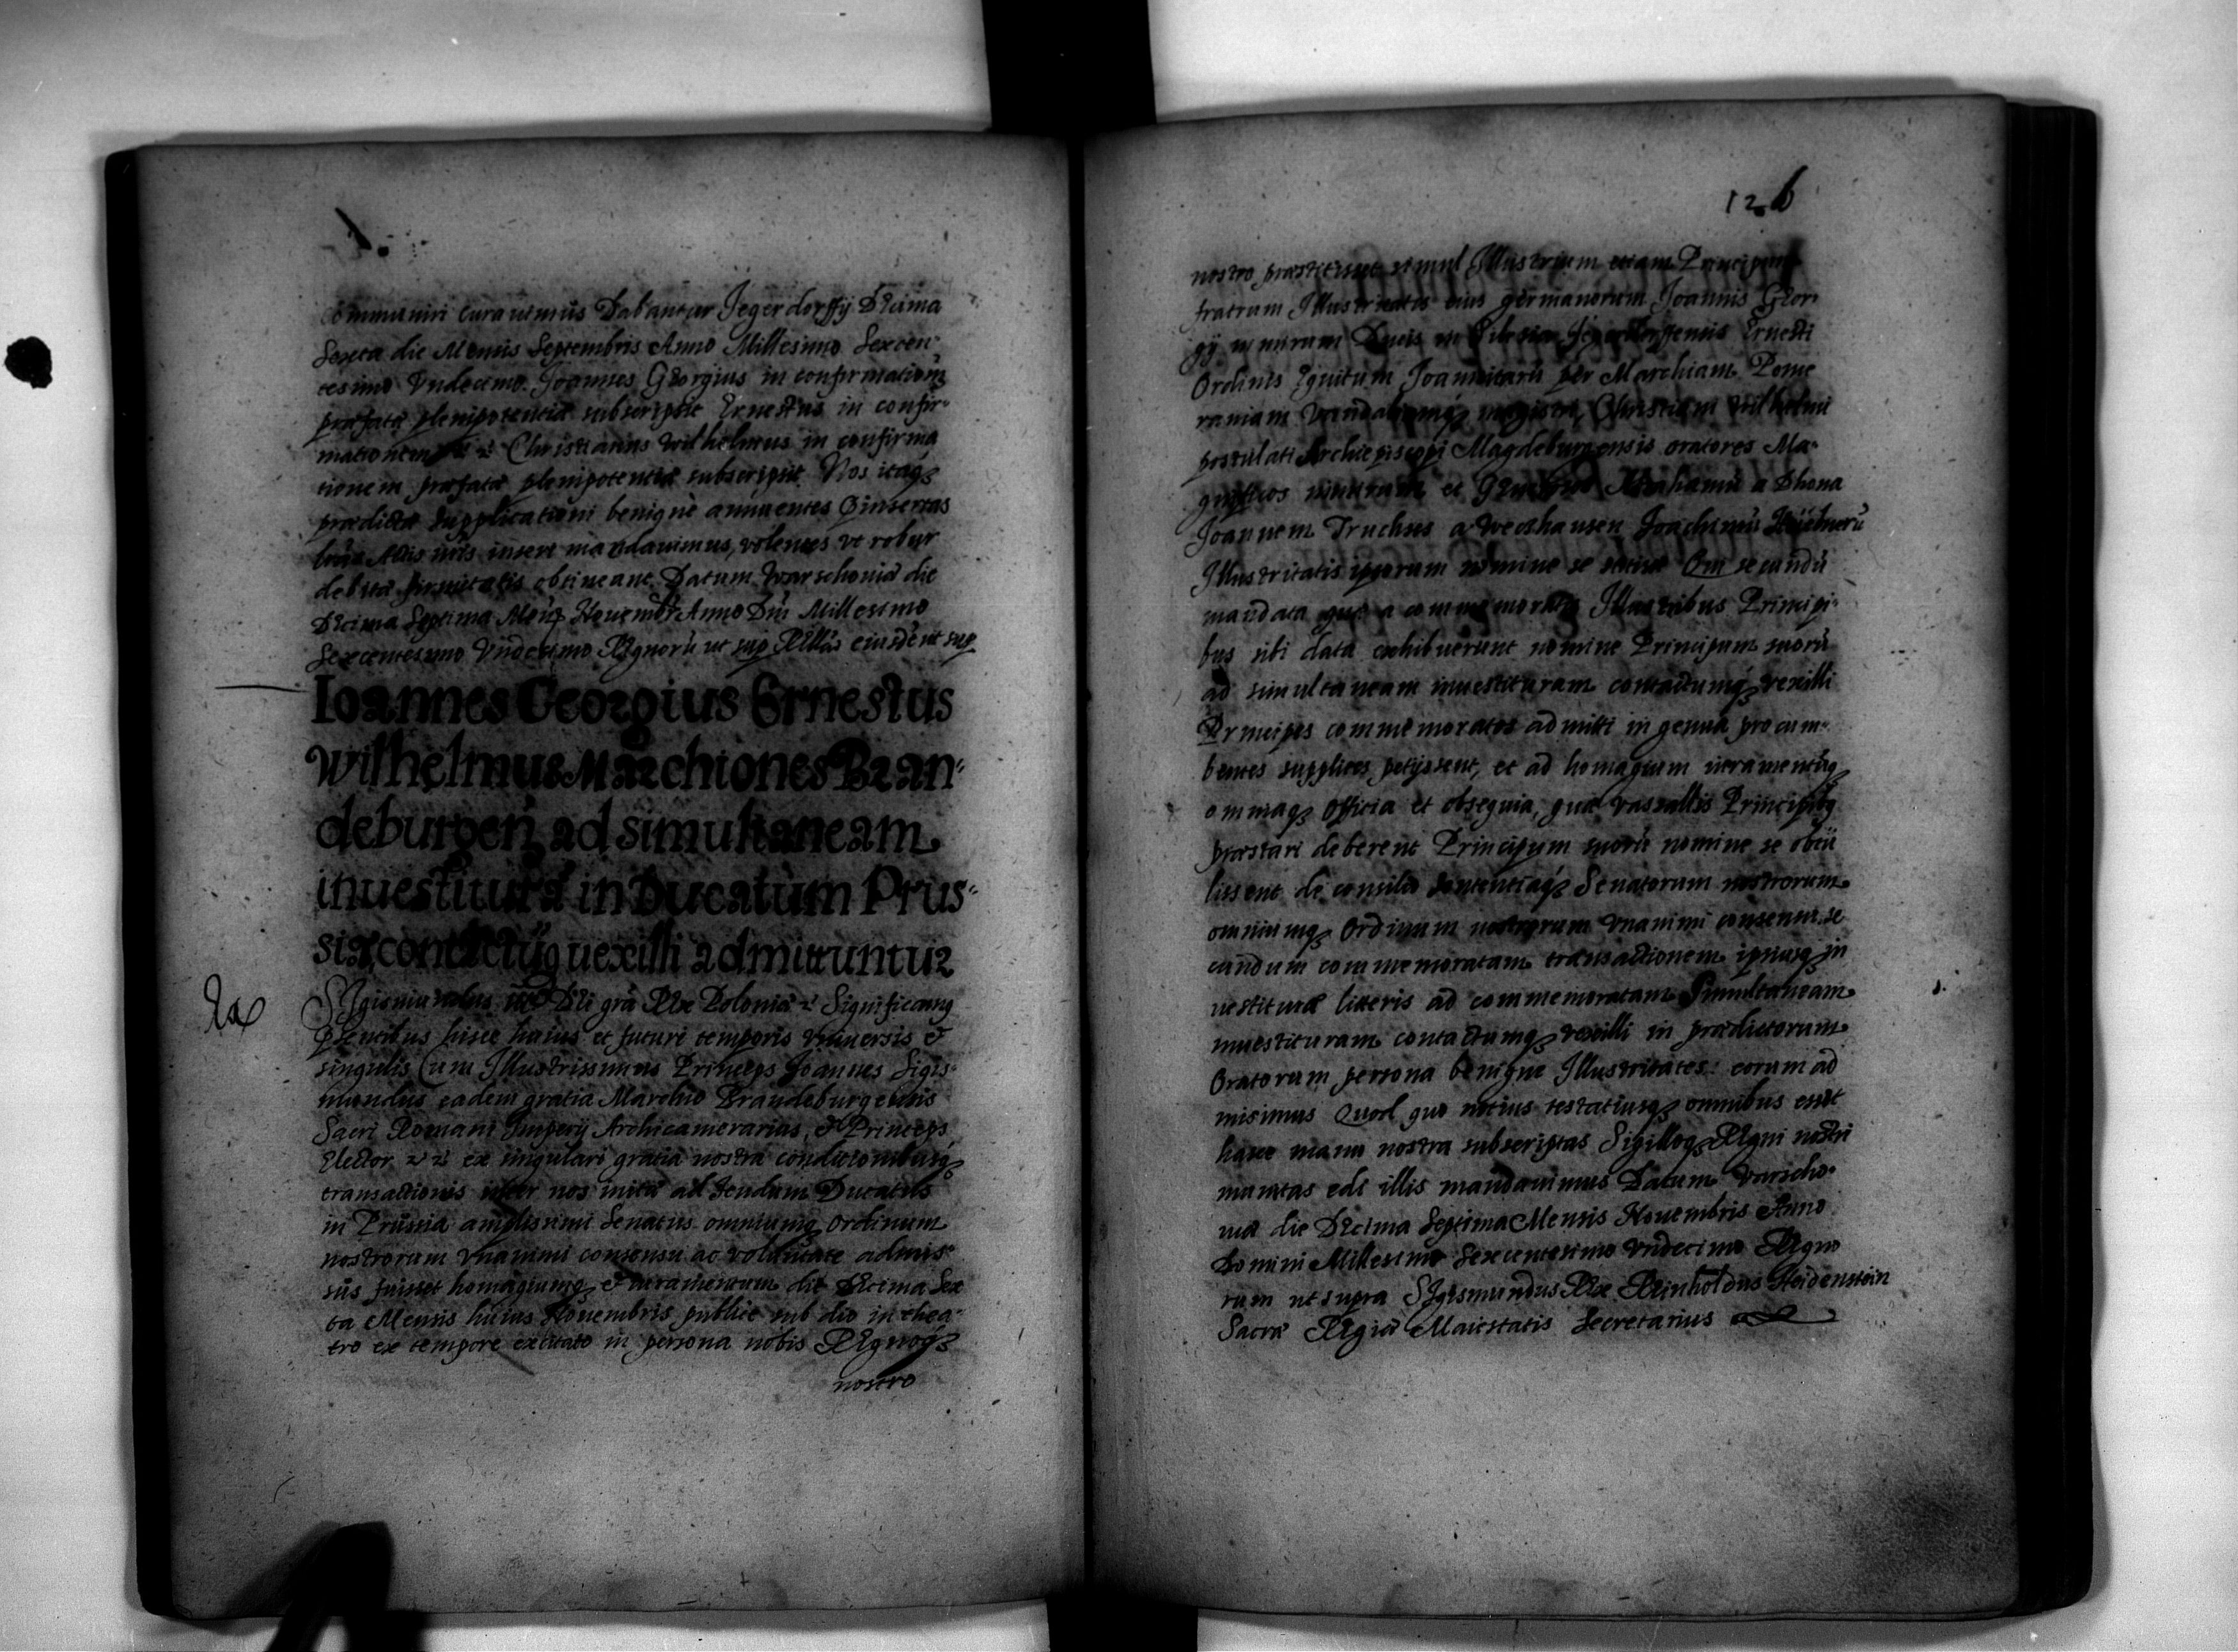 communiri curauimus Dabantur Jegerdorffij Decima
Sexta die Mensis Septembris Anno Millesimo Sexcen-
tesimo Vndecimo. Joannes Georgius in confirmationem
præfatæ plenipotentiæ subscripsit Ernestus in confir-
mationem Christianus Wilhelmus in confirma
tionem præfatæ plenipotentiæ subscripsit. Nos itaqꝫ
prædictæ supplicationi benignè annuentes
Actis inseri mandauimus, volentes vt robur
debitæ firmitatis obtineant. Datum Warschouiæ die
Decima Septima Nouembr Anno Dni Millesimo
Sexcentesimo Vndecimo Regnorū ut sup eiusdē ut sup
Ioannes Georgius Ernestus
Wilhelmus Marchiones Bran-
deburgeñ ad simultaneam
inuestiturā in Ducatum Prus-
siæ contactūq uexilli admittuntur
SIgismundus Dei grā Rex Poloniæ Significamꝰ
pñtibus hisce huius et futuri temporis vniuersis et
singulis Cum Illustrissimus Princeps Joannes Sigis-
mundus eadem gratia Marchio Brandeburgensis
Sacri Romani Imperij Archicamerarius, et Princeps
Elector ex singulari gratia nostra conditionibusqꝫ
transactionis inter nos initæ ad feudum Ducatus
in Prussia amplissimi Senatus omniumqꝫ ordinum
nostrorum vnanimi consensu ac voluntate admis-
sus fuisset homagiumqꝫ et iuramentum die Decima Sex
ta Mensis huius Nouembris publice sub dio in thea-
tro ex tempore excitato in persona nobis Regnoqꝫ
nostro
126
nostro præstitisset simul Illustrium etiam Principum
fratrum Illustritatis eius germanorum Joannis Geor-
gij Ducis in Silesia Jegerdorffensis Ernesti
Ordinis Equitum Joannitarū per Marchiam Pome
raniam Vandaliamqꝫ magistri, Christiani Wilhelmi
postulati Archiepiscopi Magdeburgensis oratores Ma-
gnificos et Abrahamū a Dhona
Joannem Truchses a Wetzhausen Joachimū Hübnerū
Illustritatis ipsorum nomine se Qui secundū
mandata quæ a commemoratis Illustribus Principi-
bus sibi data exhibuerunt nomine Principum suorū
ad simultaneam inuestituram contactumqꝫ vexilli
Principes commemoratos admitti in genua procum-
bentes supplices petijssent, et ad homagium iuramentūqꝫ
omniaqꝫ officia et obsequia, quæ vassallis Principibꝫ
præstari deberent Principum suorū nomine se obtu
lissent de consilio sententiaqꝫ Senatorum nostrorum
omniumqꝫ Ordinum nostrorum vnanimi consensu se
cundum commemoratam transactionem ipsiusqꝫ in
uestituræ litteris ad commemoratam Simultaneam
inuestituram contactumqꝫ vexilli in prædictorum
Oratorum persona benigne Illustritates eorum ad
misimus Quod quo notius testatiusqꝫ omnibus esset
hasce manu nostra subscriptas Sigilloqꝫ Regni nostri
munitas edi illis mandauimus Datum Varscho-
uiæ die Decima Septima Mensis Nouembris Anno
Domini Millesimo Sexcentesimo vndecimo Regno
rum ut supra SIgismundus Rex Reinholdus Heidenstein
Sacræ Regiæ Maiestatis Secretarius